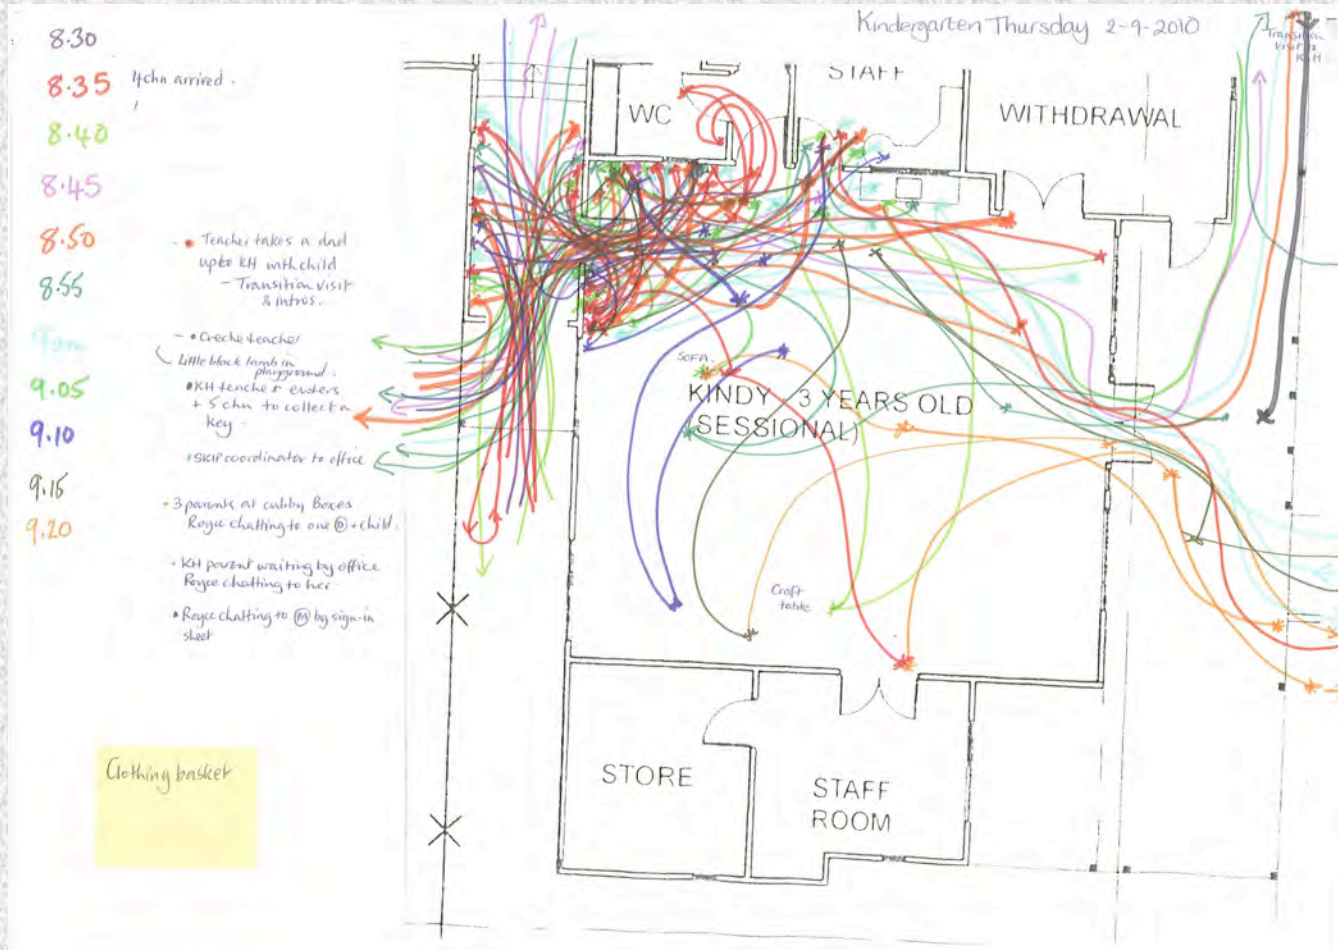 Kindergarten Thursday 2-9-2010
8.30
8.35
4chn arrived.
8.40
8.45
8.50
8.55
9am
9.05
9.10
9.15
9.20
- Teacher takes a dad
up to KH with child
- Transition visit
& intros.
- Creche teacher
Little black lamb in
playground.
KH teacher enters
+ 5 chn to collect a
key.
SKIP coordinator to office
- 3 parents at cubby Boxes
Royce chatting to one D + child.
- KH parent waiting by office
Royce chatting to her
Royce chatting to M by sign-in
sheet
Clothing basket
WC
STAFF
WITHDRAWAL
Transition
visit to
KH
SOFA.
KINDY - 3 YEARS OLD
(SESSIONAL)
Craft
table
STORE
STAFF
ROOM